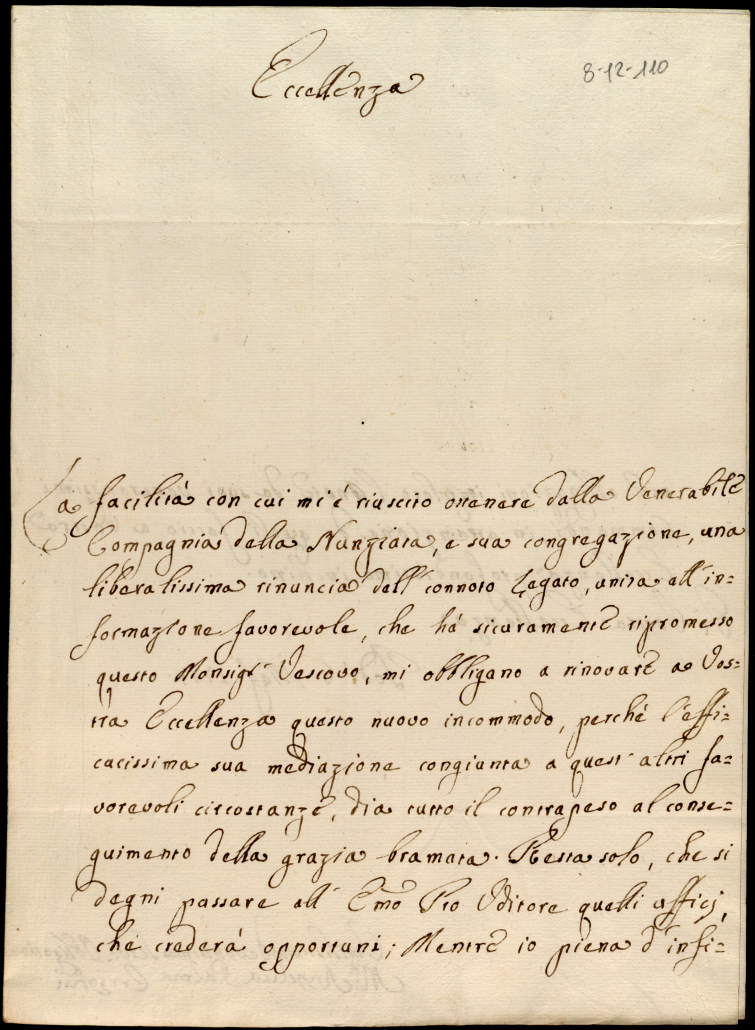 Eccellenza
8-12-110
La facilità con cui mi è riuscito ottenere dalla Venerabile
Compagnia della Nunziata, e sua congregazione, una
liberalissima rinuncia dell' connoto Legato, unita all' in=
formazione favorevole, che hà sicuramente ripromesso
questo Monsigr. Vescovo, mi obbligano a rinovare a Vos=
tra Eccellenza questo nuovo incommodo, perchè l'effi=
cacissima sua mediazione congiunta a quest' altri fa=
vorevoli circostanze, dia tutto il contrapeso al conse=
guimento della grazia bramata. Resta solo, che si
degni passare all' Emo Pro Uditore quelli ufficj,
che crederà opportuni; Mentre io piena d' infi=